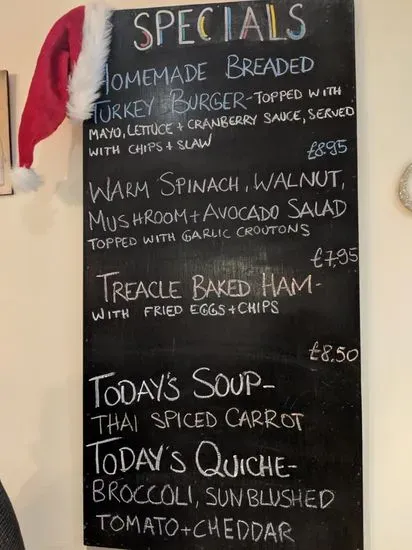 SPECIALS
HOMEMADE BREADED
TURKEY BURGER-TOPPED WITH
MAYO, LETTUCE + CRANBERRY SAUCE, SERVED
WITH CHIPS + SLAW
£8.95
WARM SPINACH, WALNUT,
MUSHROOM + AVOCADO SALAD
TOPPED WITH GARLIC CROUTONS
£7,95
TREACLE BAKED HAM-
WITH FRIED EGGS + CHIPS
£8.50
TODAY'S SOUP-
THAI SPICED CARROT
TODAY'S QUICHE-
BROCCOLI, SUNBLUSHED
TOMATO + CHEDDAR